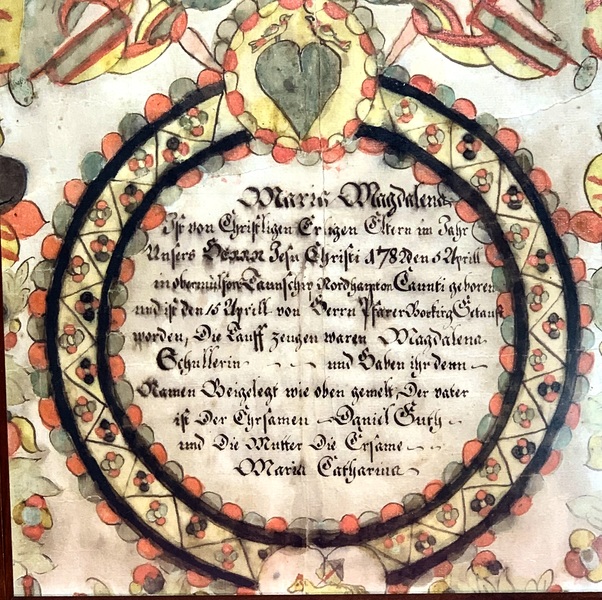 Maria Magdalena
Ist von Christligen Erligen Eltern im Jahr
Unsers Herrn Jesu Christi 1782 den 5 Aprill
in obermilfor Taunschip Nordhampton Caunti geboren
und ist den 15 Aprill von Herrn Pfarer Getauft
worden, Die Tauff zeugen waren Magdalena
Schullerin - - - und Haben ihr denn
Namen Beigelegt wie oben gemelt, Der vater
ist Der Ehrsamen Daniel Guth
und Die Mutter Die Ersame
Maria Catharina